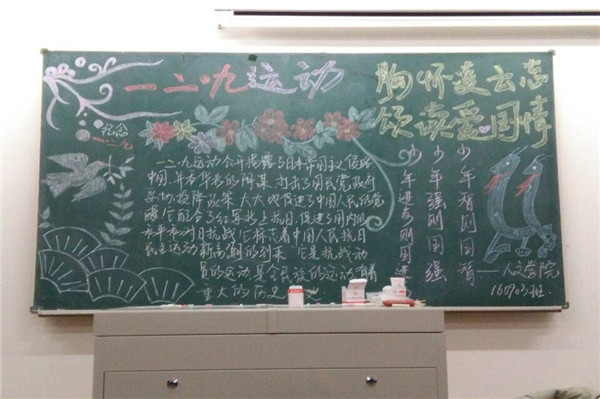 一二·九运动
胸怀凌云志
颂读爱国情
纪念
一二·九
一二·九运动公开揭露了日本帝国主义侵略
中国,并吞华北的阴谋,打击了国民党政府
妥协投降政策,大大地促进了中国人民的觉
醒。它配合了红军北上抗日,促进了国内和
平和对日抗战。它标志着中国人民抗日
民主运动新高潮的到来。它是抗战动
员的运动,是全民族的运动,有着
重大的历史 义
少年 则国
少年强则国强
少年进步则国进
——人文学院
160703班